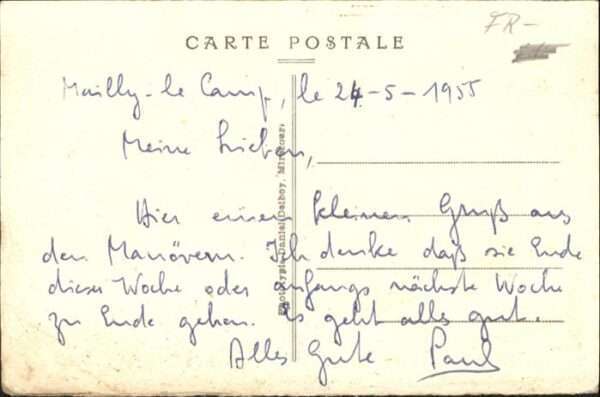 FR-
CARTE POSTALE
Mailly-le Camp, le 24-5-1955
Meine Lieben,
Hier einen kleinen Gruß aus
den Manövern. Ich denke daß sie Ende
dieser Woche oder anfangs nächste Woche
zu Ende gehen. Es geht alles gut.
Alles Gute Paul
Phototypie Daniel Delboy, Mirecourt